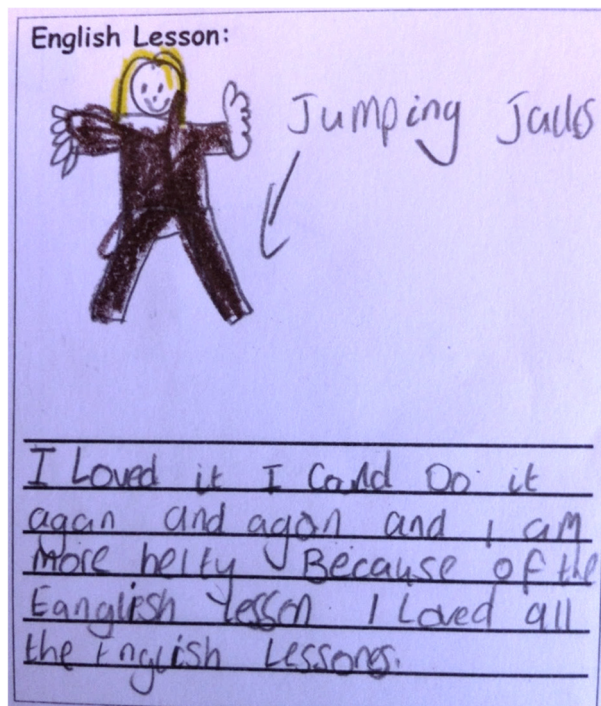 English Lesson:
Jumping Jacks
I Loved it I Could Do it
agan and agan and I am
More helty Because of the
Eanglish lesson I Loved all
the English Lessones.